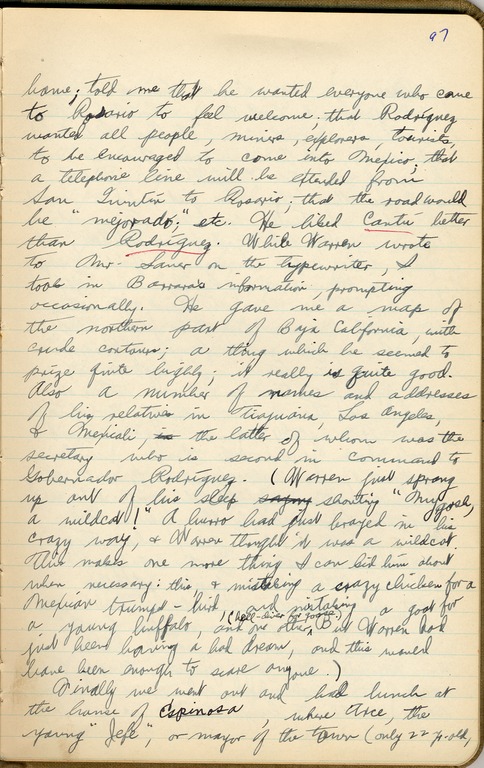 97
home; told me that he wanted everyone who came
to Rosario to feel welcome; that Rodríguez
wanted all people, miners, explorers, tourists,
to be encouraged to come into Mexico; that
a telephone line will be extended from
San Quintín to Rosario; that the road would
be "mejorado;" etc. He liked Cantú better
than Rodríguez. While Warren wrote
to Mr. on the typewriter, I
took in Barrara's information, prompting
occasionally. He gave me a map of
the northern part of Baja California, with
crude contours; a thing which he seemed to
prize quite highly; it really is quite good.
Also a number of names and addresses
of his relatives in Tiajuana, Los Angeles,
& Mexicali, in the latter of whom was the
secretary who is second in command to
Gobernador Rodríguez. (Warren just sprang
up out of his sleep saying shouting "My gosh,
a wildcat!" A burro had just brayed in his
crazy way, & Warren thought it was a wildcat.
This makes one more thing I can kid him about
when necessary: this & mistaking a crazy chicken for a
Mexican trumpet-bird, and mistaking a goat for
a young buffalo, and one other, (hell-diver or goose) But Warren had
just been having a bad dream, and this would
have been enough to scare anyone.)
Finally we went out and had lunch at
the house of Espinosa, where Arce, the
young "Jefe", or mayor of the town (only 22 yr. old,